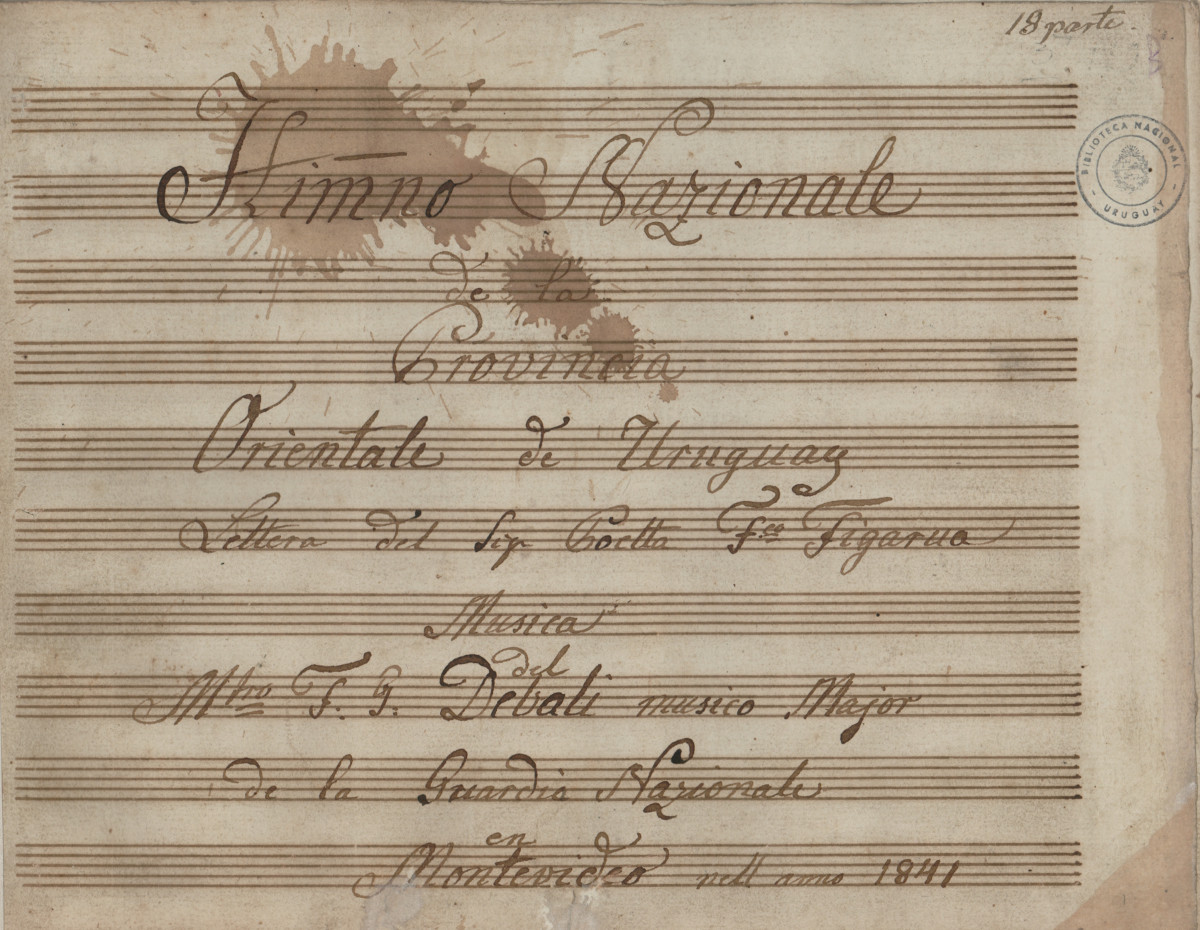 18 parte.
Himno Nazionale
BIBLIOTECA NACIONAL
URUGUAY
de la
Provincia
Orientale de Uruguay
Lettera del Sig Poetta F.co Figarua
Musica
del
M.tro F. G. Debali musico Major
de la Guardia Nazionale
en
Montevideo nell anno 1841